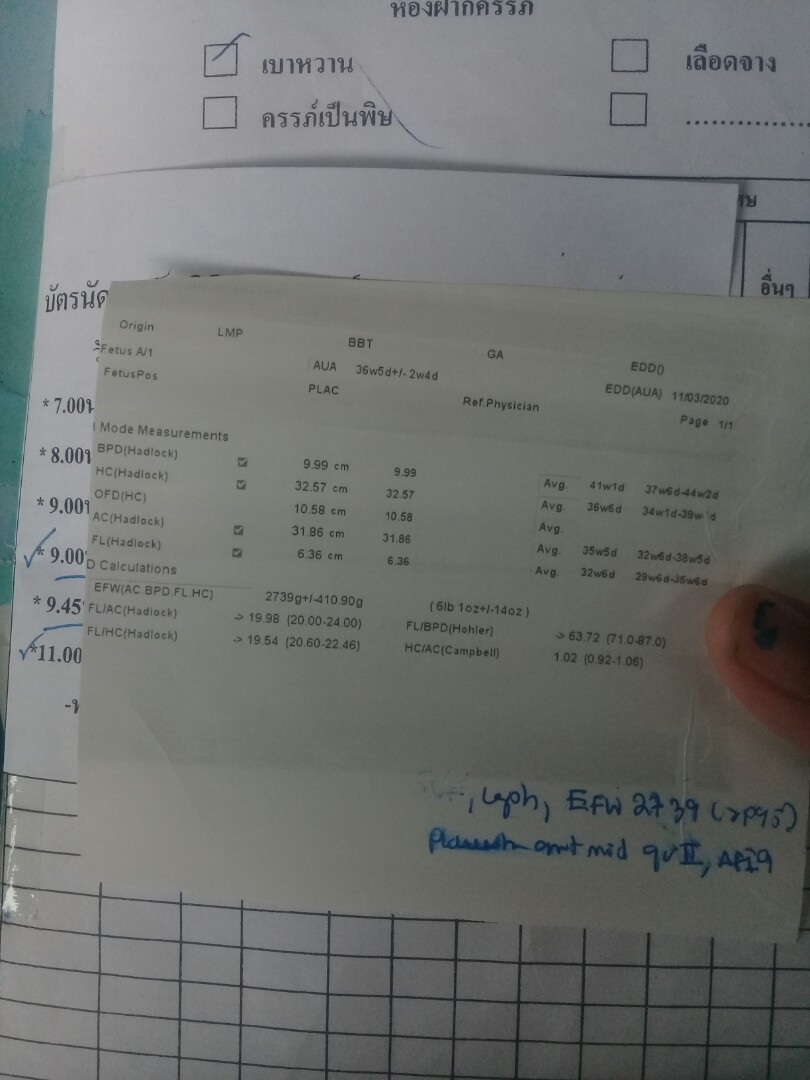 ห้องฝากครรภ์
เบาหวาน
เลือดจาง
ครรภ์เป็นพิษ
....................
อื่นๆ
บัตรนัด
Origin LMP BBT GA EDD()
Fetus A/1 AUA 36w5d+/- 2w4d EDD(AUA) 11/03/2020
FetusPos PLAC Ref.Physician Page 1/1
* 7.00
Mode Measurements
BPD(Hadlock) 9.99 cm 9.99 Avg. 41w1d 37w6d-44w2d
* 8.00
HC(Hadlock) 32.57 cm 32.57 Avg. 36w6d
OFD(HC) 10.58 cm 10.58 Avg.
* 9.00
AC(Hadlock) 31.86 cm 31.86 Avg. 35w5d 32w6d-38w5d
FL(Hadlock) 6.36 cm 6.36 Avg. 32w6d 29w6d-35w6d
* 9.00
D Calculations
EFW(AC.BPD.FL.HC) 2739g+/-410.90g (6lb 1oz+/-14oz )
* 9.45
FL/AC(Hadlock) -> 19.98 (20.00-24.00) FL/BPD(Hohler) -> 63.72 (71.0-87.0)
FL/HC(Hadlock) -> 19.54 (20.60-22.46) HC/AC(Campbell) 1.02 (0.92-1.06)
*11.00
EFW 2739 (>P95)
mid